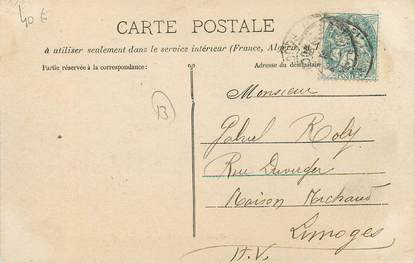 40 €
CARTE POSTALE
à utiliser seulement dans le service intérieur (France, Algérie
Partie réservée à la correspondance:
Adresse du destinataire
13
Monsieur
Gabriel Roly
Rue Duverger
Maison Michaud
Limoges
H.V.